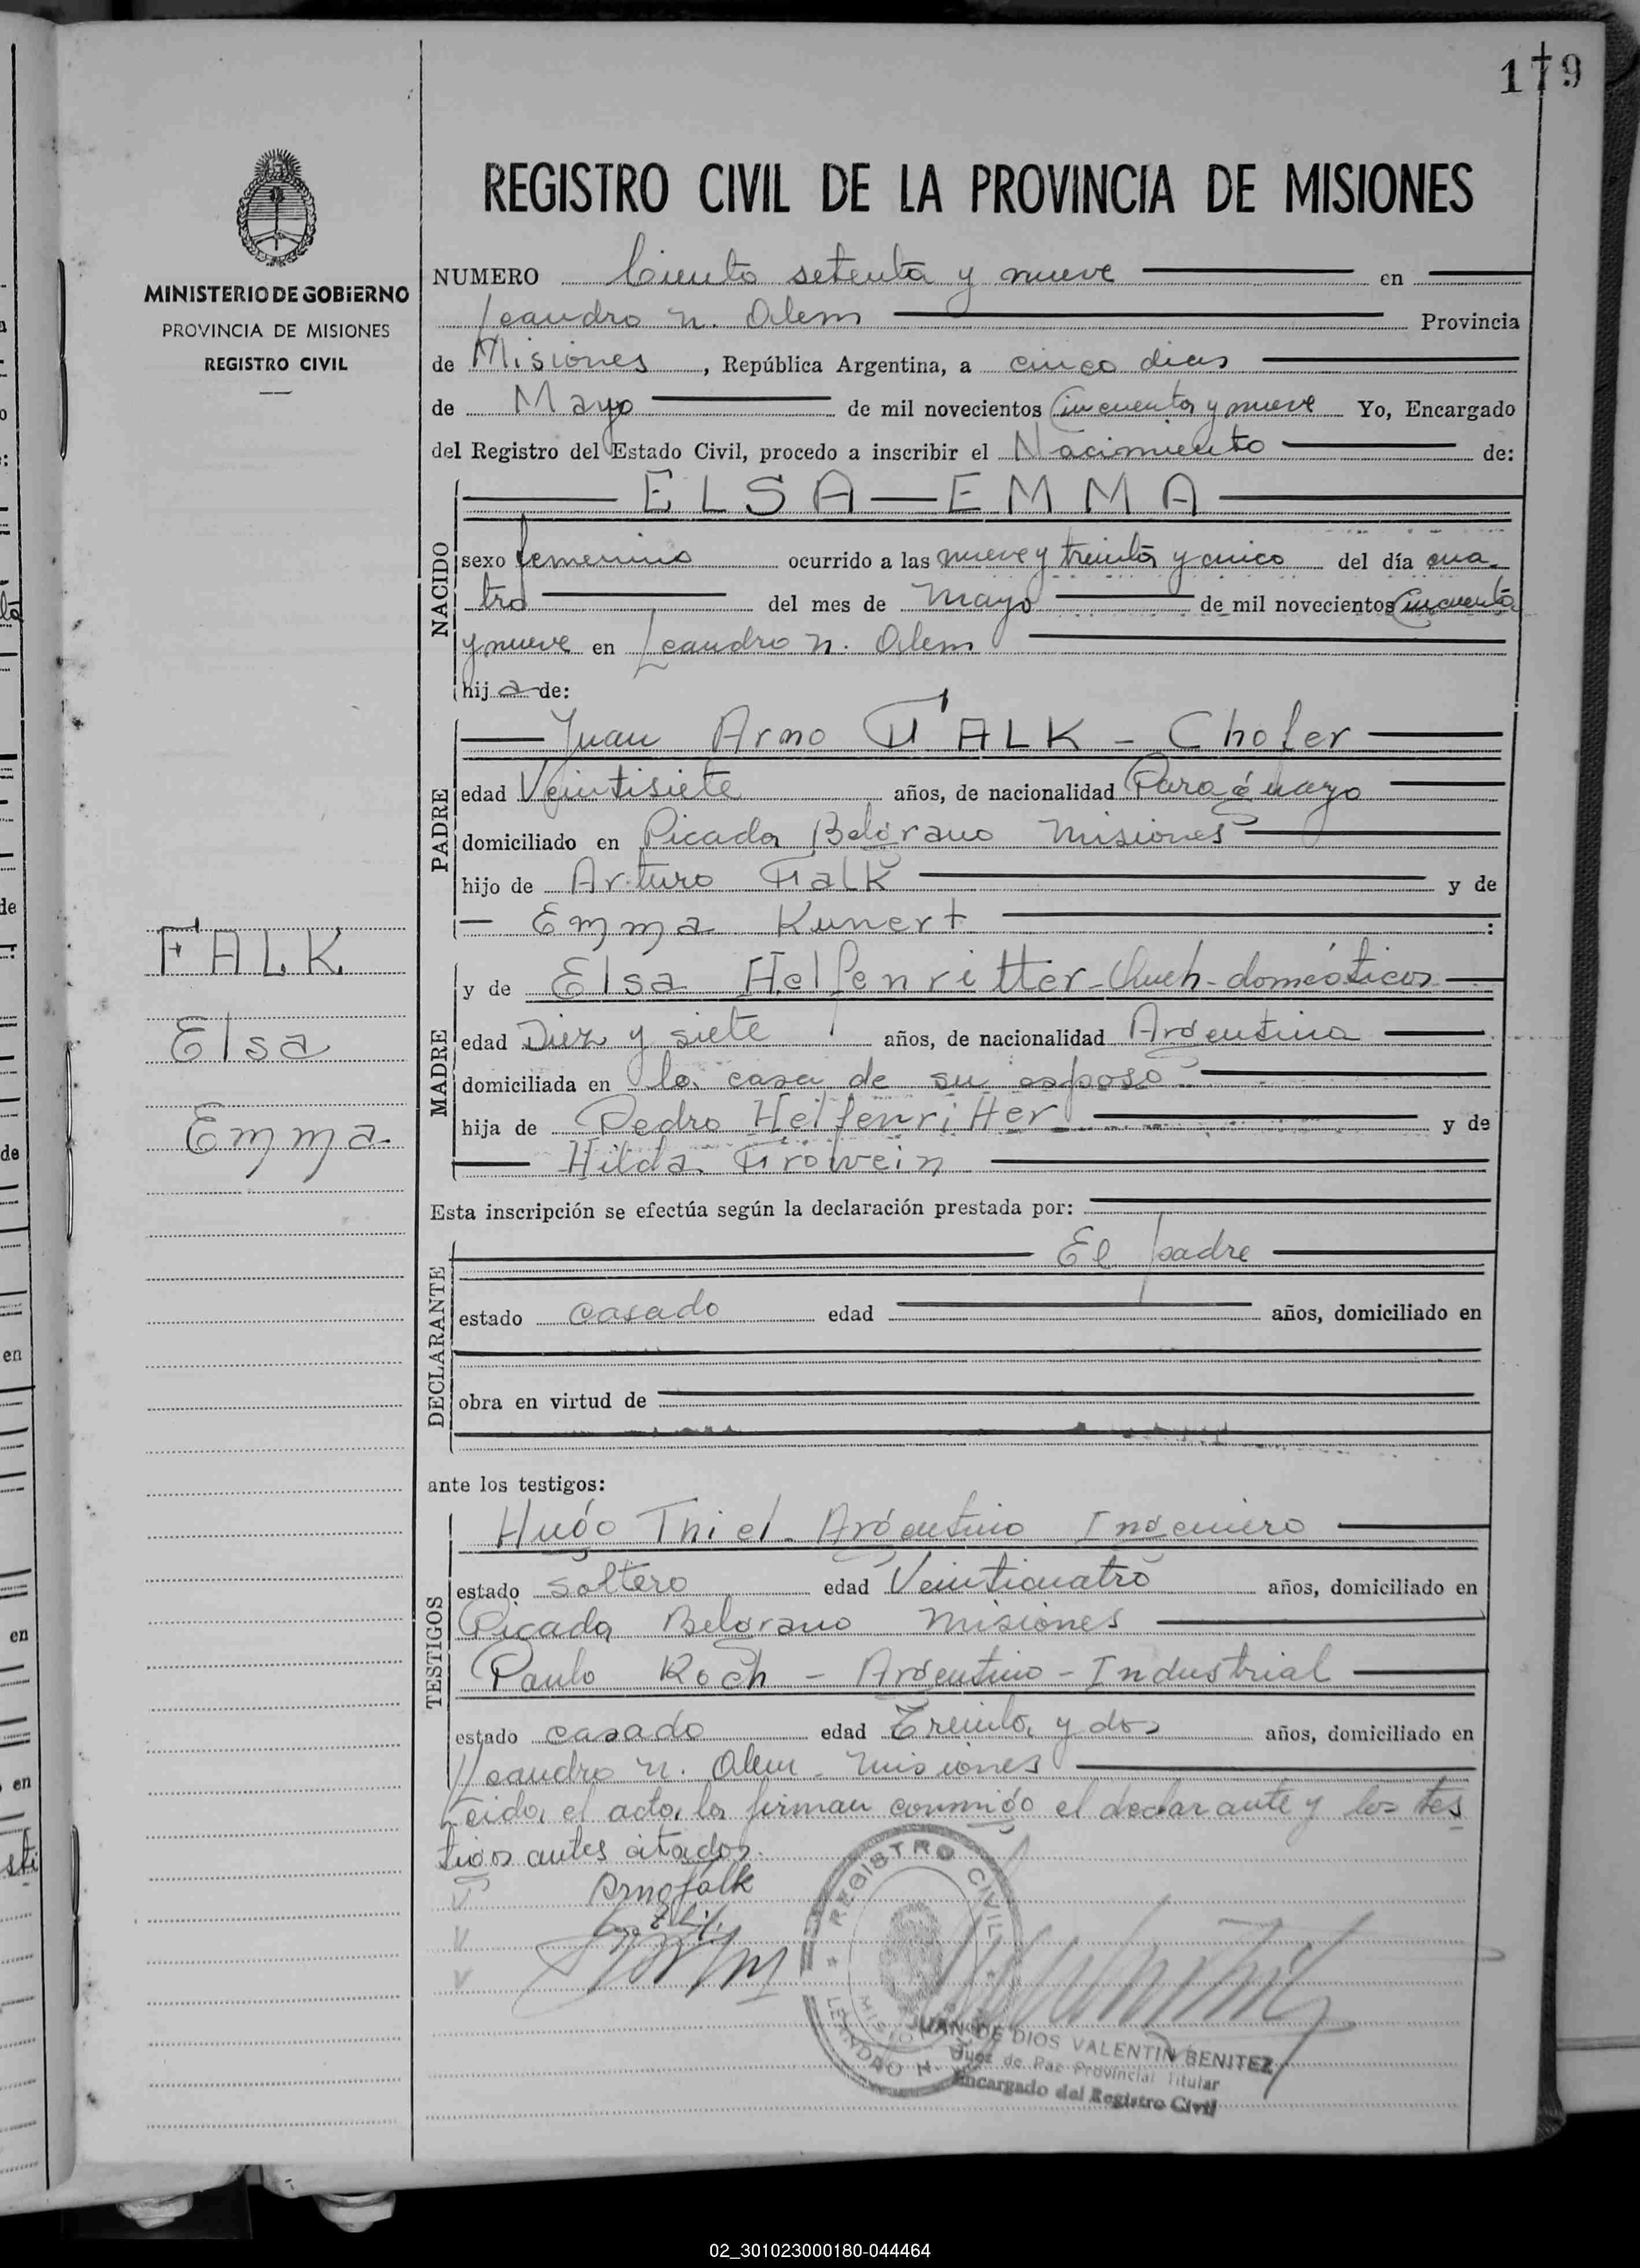 179
REGISTRO CIVIL DE LA PROVINCIA DE MISIONES
MINISTERIO DE GOBIERNO
PROVINCIA DE MISIONES
REGISTRO CIVIL
NUMERO Ciento setenta y nueve en
Leandro N. Alem Provincia
de Misiones, República Argentina, a cinco dias
de Mayo de mil novecientos Cincuenta y nueve Yo, Encargado
del Registro del Estado Civil, procedo a inscribir el Nacimiento de:
NACIDO
ELSA—EMMA
sexo femenino ocurrido a las nueve y treinta y cinco del día cua-
tro del mes de Mayo de mil novecientos Cincuenta
y nueve en Leandro N. Alem
hija de:
PADRE
Juan Arno FALK - Chofer
edad Veintisiete años, de nacionalidad Paraguayo
domiciliado en Picada Belgrano Misiones
hijo de Arturo Falk y de
Emma Kunert :
FALK
Elsa
Emma
MADRE
y de Elsa Helfenritter - Queh-domésticos
edad Diez y siete años, de nacionalidad Argentina
domiciliada en la casa de su esposo
hija de Pedro Helfenritter y de
Hilda Frowein
Esta inscripción se efectúa según la declaración prestada por:
DECLARANTE
El padre
estado casado edad años, domiciliado en
obra en virtud de
ante los testigos:
TESTIGOS
Hugo Thiel - Argentino Ingeniero
estado soltero edad Veinticuatro años, domiciliado en
Picada Belgrano Misiones
Paulo Koch - Argentino - Industrial
estado casado edad Treinta y dos años, domiciliado en
Leandro N. Alem - Misiones
Leida el acta la firman conmigo el declarante y los tes
tigos antes citados.
Arno Falk
REGISTRO CIVIL
LEANDRO N.
MISIONES
JUAN DE DIOS VALENTIN BENITEZ
Juez de Paz Provincial Titular
Encargado del Registro Civil
02_301023000180-044464